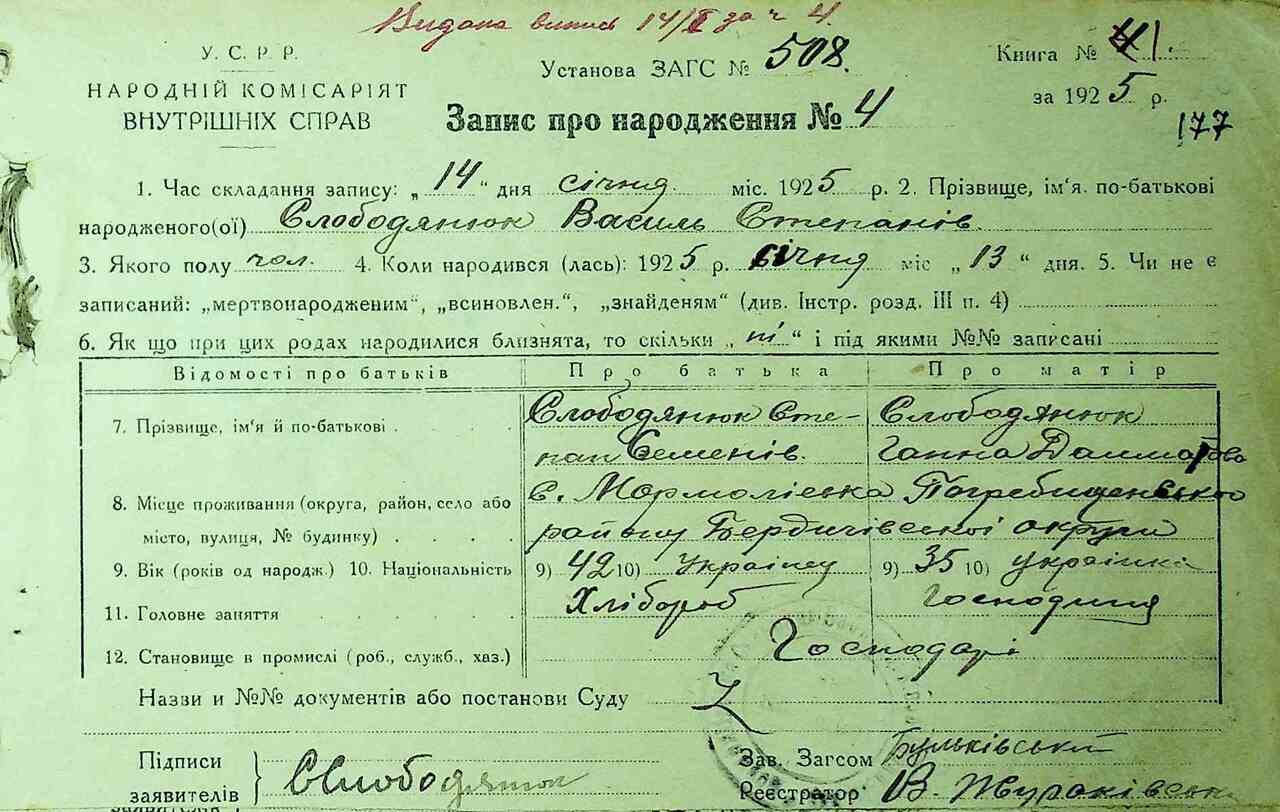 Видана випись 14/I за ч 4.
У. С. Р. Р.
НАРОДНІЙ КОМІСАРІЯТ
ВНУТРІШНІХ СПРАВ
Установа ЗАГС № 508.
Книга № 41.
за 1925 р.
Запис про народження № 4
177
1. Час складання запису: „14“ дня січня міс. 1925 р. 2. Прізвище, ім‘я. по-батькові
народженого(ої) Слободянюк Василь Степанів.
3. Якого полу чол. 4. Коли народився (лась): 1925 р. січня міс „13“ дня. 5. Чи не є
записаний: „мертвонародженим“, „всиновлен.“, „знайденям“ (див. Інстр. розд. III п. 4)
6. Як що при цих родах народилися близнята, то скільки „ні“ і під якими №№ записані
Відомості про батьків Про батька Про матір
7. Прізвище, ім‘я й по-батькові Слободянюк Сте- Слободянюк
пан Семенів. Ганна
8. Місце проживання (округа, район, село або с. Мормоліевка Погребищенського
місто, вулиця, № будинку) району Бердичівської округи
9. Вік (років од народж.) 10. Національність 9) 42 10) Українец 9) 35 10) українка
11. Головне заняття Хлібороб Господиня
12. Становище в промислі (роб., служб., хаз.) Господарі
Назви и №№ документів або постанови Суду
Підписи
заявителів
Слободянюк
Зав. Загсом Бульківський
Реєстратор В. Жураківськ